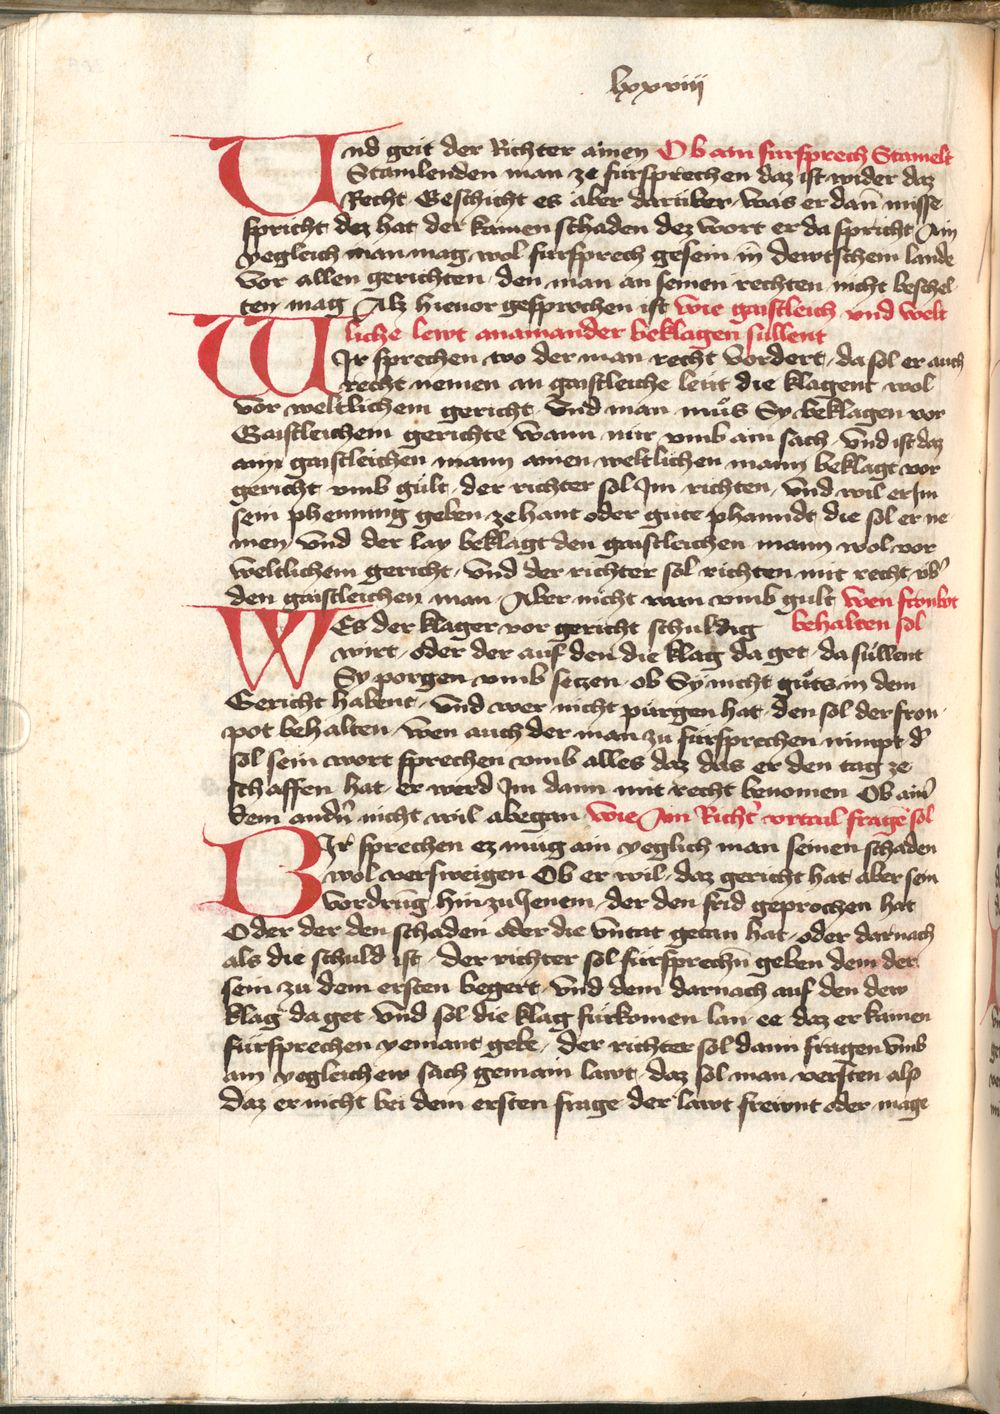 lxxviij
Und geit der Richter ainen Ob ain fursprech Stamelt
Stamlenden man ze fürsprechen daz ist wider daz
Recht Geschicht es aber darüber was er dan̄ misse
spricht dez hat der kainen schaden dez wort er da spricht Ain
yegleich man mag wol fürsprech gesein in dewtschem lande
vor allen gerichten den man an seinen rechten nicht beschel
ten mag Alz hieuor gesprochen ist wie gaistleich vnd welt
liche lewt anainander beklagen süllent
WIr sprechen wo der man recht vordert da sol er auch
recht nemen an gaistleiche leüt die klagent wol
vor weltlichem gericht vnd man můs Sy beklagen vor
Gaistleichem gerichte wann nür vmb ain sach vnd ist daz
ain gaistleichen mann ainen weltlichen mann beklagt vor
gericht vmb gült der richter sol Im richten vnd wil er Im
sein phenning geben zehant oder gute phanndt die sol er ne
men vnd der lay beklagt den gaistleichen mann wol vor
weltlichem gericht vnd der richter sol richten mit recht vb'
den gaistleichen man Aber nicht wan vmb gult Wen fronbot
WEs der klager vor gericht schuldig behalten sol
wirt oder der auf den die klag da get da süllent
Sy porgen vmb setzen ob Sy nicht gůts in dem
Gericht habent vnd wer nicht pürgen hat den sol der fron
pot behalten wen auch der man zu fürsprechen nimpt d'
sol sein wort sprechen vmb alles daz das er den tag ze
schaffen hat er werd Im dann mit recht benomen Ob ain'
dem andn̄ nicht wil abegan wie Am Richt' vrtail frage sol
WIr sprechen ez müg ain yeglich man seinen schaden
wol versweigen Ob er wil daz gericht hat aber sein
vordrūg hin zu Jenem der den frid geprochen hat
Oder der den schaden oder die vntat getan hat oder darnach
als die schuld ist der richter sol fürsprechn̄ geben dem der
sein zu dem ersten begert vnd dem darnach auf den dew
klag da get vnd sol die klag fürkomen lan ee daz er kainen
fürsprechen yemant gebe der richter sol dann fragen vmb
ain yegleichew sach gemain lawt daz sol man versten also
daz er nicht bei dem ersten frage der lawt frewnt oder mage